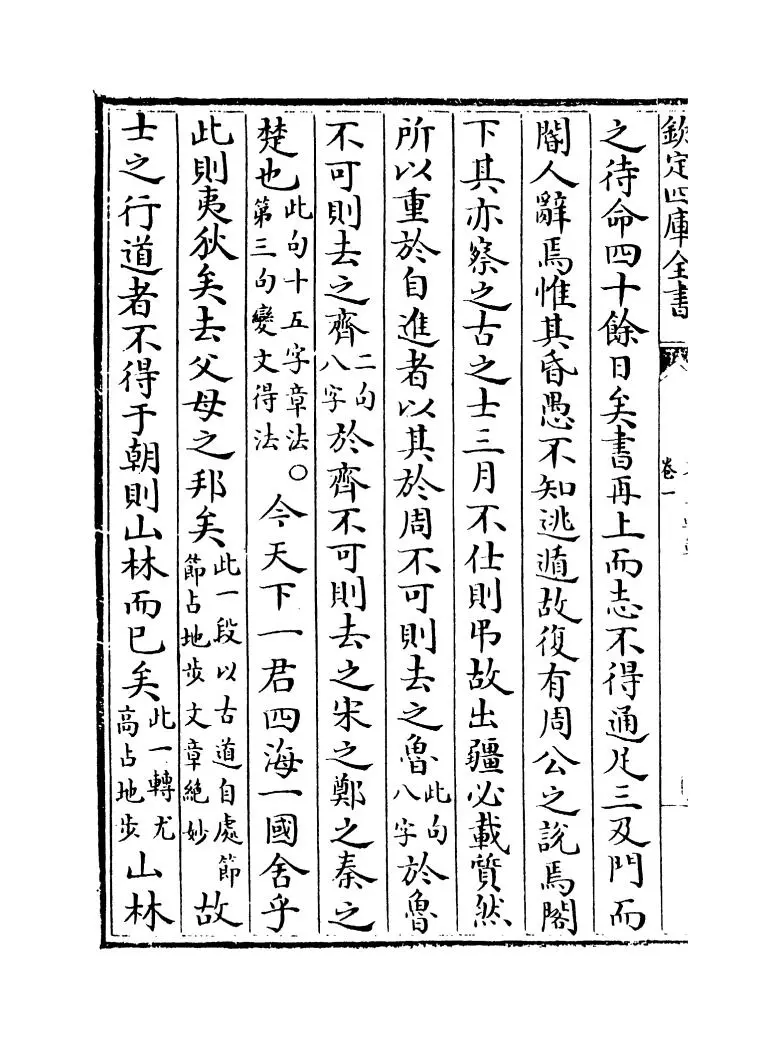 欽定四庫全書
卷一
之待命四十餘日矣書再上而志不得通足三及門而
閽人辭焉惟其昏愚不知逃遁故復有周公之說焉閤
下其亦察之古之士三月不仕則弔故出疆必載質然
所以重於自進者以其於周不可則去之魯此句八字於魯
不可則去之齊二句八字於齊不可則去之宋之鄭之秦之
楚也此句十五字章法第三句變文得法○今天下一君四海一國舍乎
此則夷狄矣去父母之邦矣此一段以古道自處節節占地步文章絶妙故
士之行道者不得于朝則山林而已矣此一轉尤高占地步山林